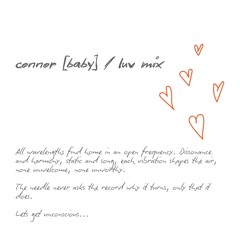 connor [baby] / luv mix
All wavelengths find home in an open frequency. Dissonance
and harmony, static and song, each vibration shapes the air,
none unwelcome, none unworthy.
The needle never asks the record why it turns, only that it
does.
Lets get unconscious...